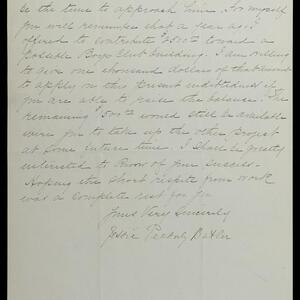 be the time to approach him. For myself
you will remember that a year ago I
offered to contribute $1500.00 toward a
possible Boys Club building. I am willing
to give one thousand dollars of that amount
to apply on this present indebtedness if
you are able to raise the balance. The
remaining $500.00 would still be available
were you to take up the other project
at some future time. I shall be greatly
interested to know of your success.
Hoping the short respite from work
was a complete rest for you
Yours Very Sincerely
Jessie Peabody Butler